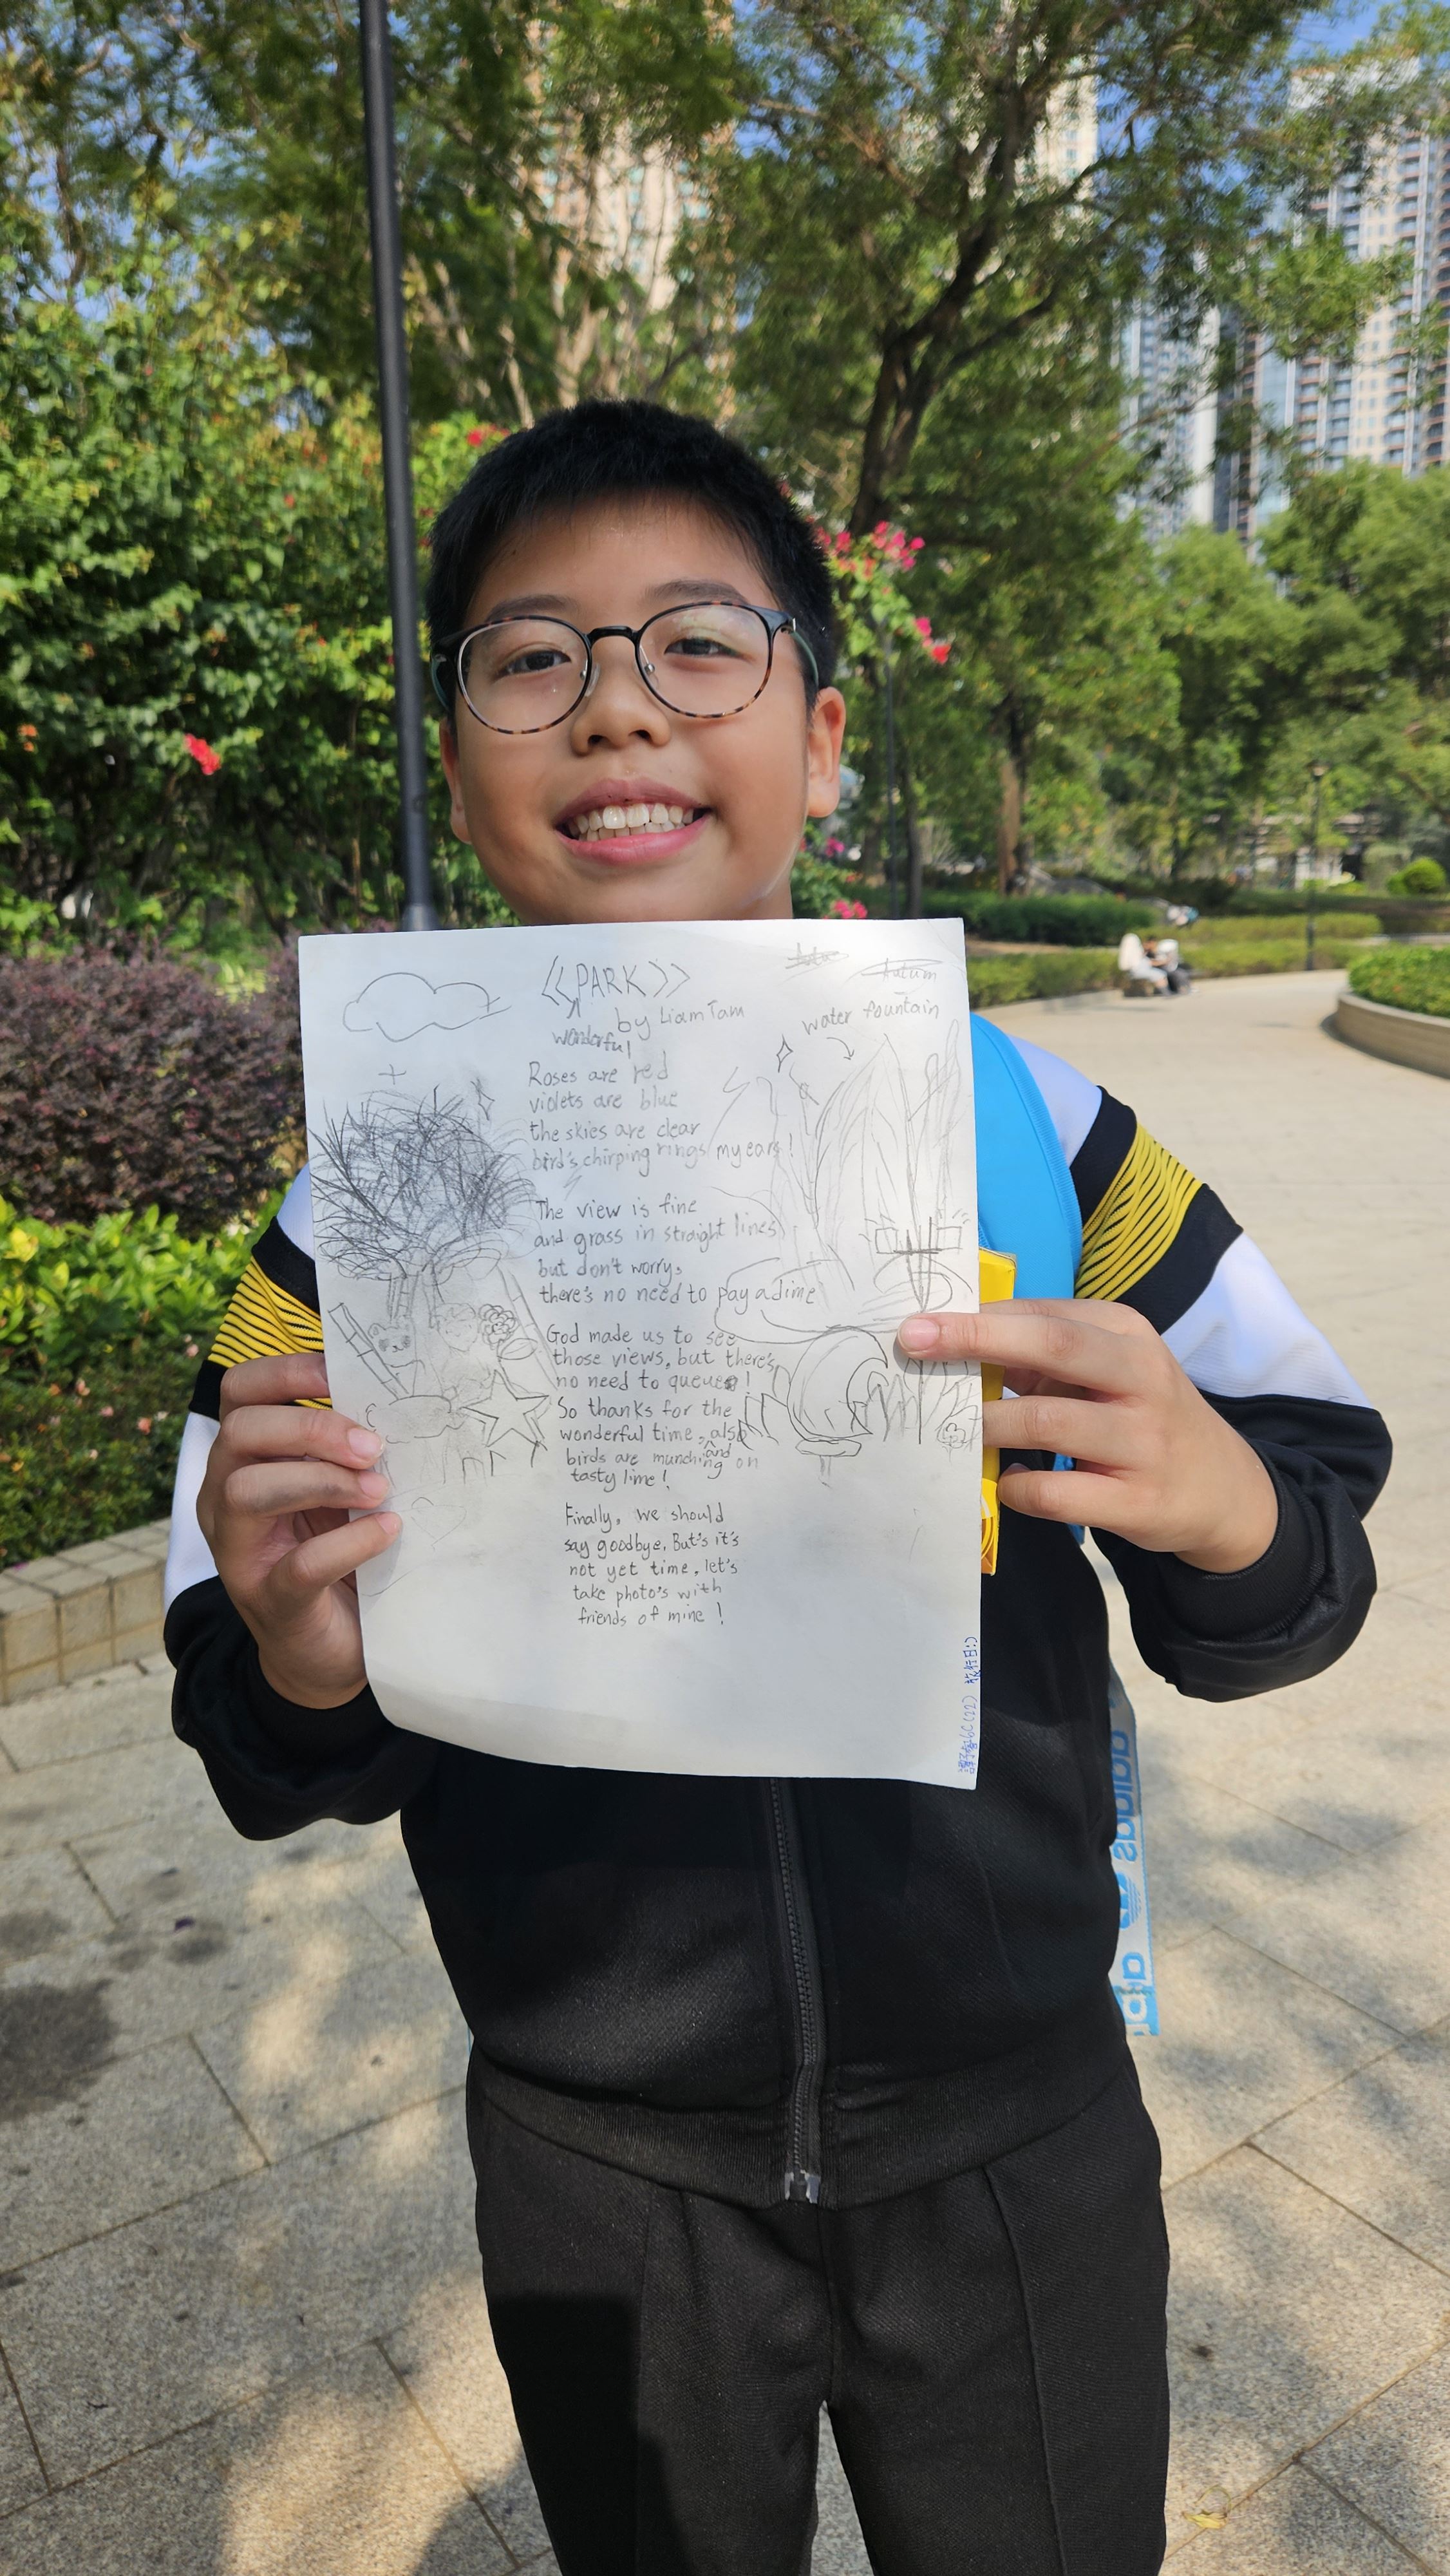 《PARK》
wonderful
by Liam Tam
Autum
water fountain
Roses are red
violets are blue
the skies are clear
bird's chirping rings my ears!
The view is fine
and grass in straight lines
but don't worry,
there's no need to pay a dime
God made us to see
those views, but there's
no need to queue!
So thanks for the
wonderful time, also
and
birds are munching on
tasty lime!
Finally, we should
say goodbye, But's it's
not yet time, let's
take photo's with
friends of mine!
6C (22) 旅行日:)
adidas